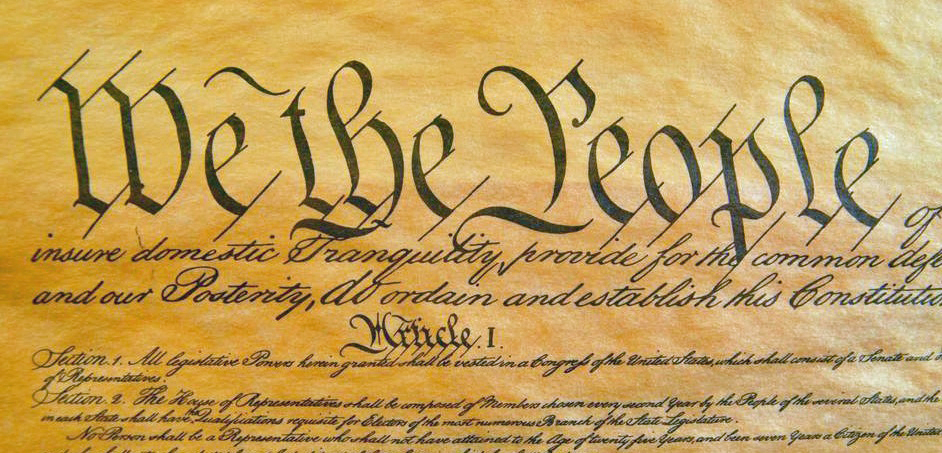 We the People of
insure domestic Tranquility, provide for the common defe
and our Posterity, do ordain and establish this Constitutio
Article. I.
Section. 1. All legislative Powers herein granted shall be vested in a Congress of the United States, which shall consist of a Senate and
of Representatives.
Section. 2. The House of Representatives shall be composed of Members chosen every second Year by the People of the several States, and the
in each State shall have the Qualifications requisite for Electors of the most numerous Branch of the State Legislature.
No Person shall be a Representative who shall not have attained to the Age of twenty five Years, and been seven Years a Citizen of the United